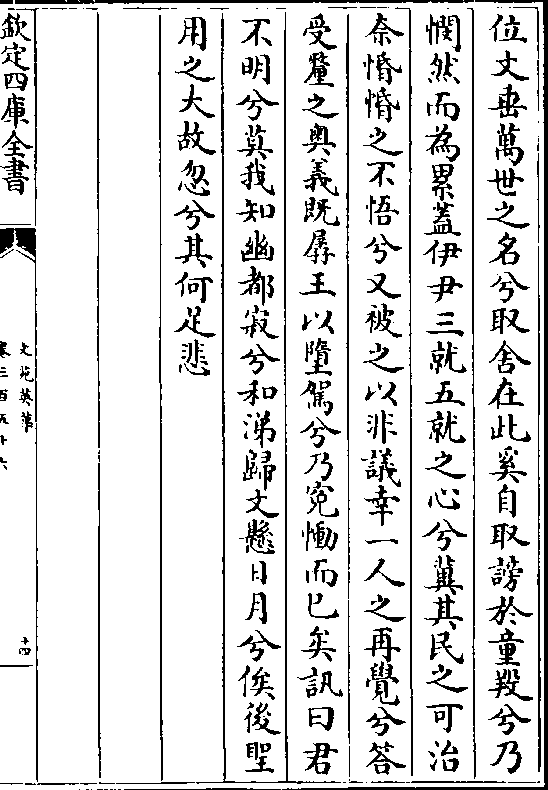 位文垂萬世之名兮取舍在此奚自取謗於童羖兮乃
憪然而為累蓋伊尹三就五就之心兮冀其民之可治
奈惛惛之不悟兮又被之以非議幸一人之再覺兮答
受釐之奥義既孱王以墮駕兮乃寃慟而已矣訊曰君
不明兮莫我知幽都寂兮和涕歸文懸日月兮俟後聖
用之大故忽兮其何足悲
欽定四庫全書
文苑英華
卷三百五十六
十四